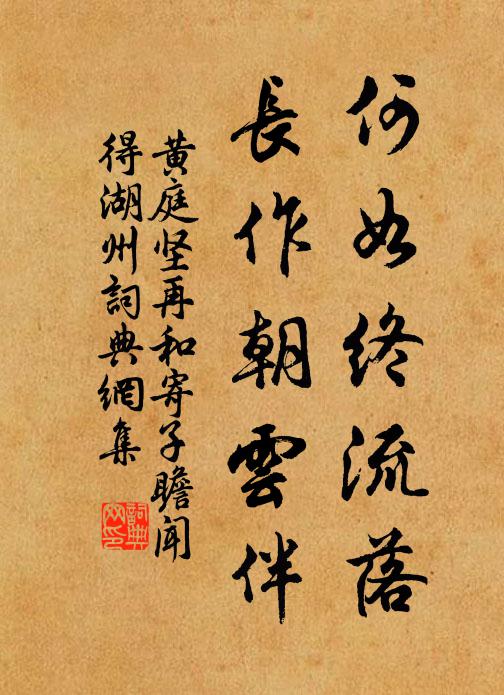 何如終流落
長作朝雲伴
黄庭坚再和寄子瞻聞
得湖州詞典網集
詞典
网印